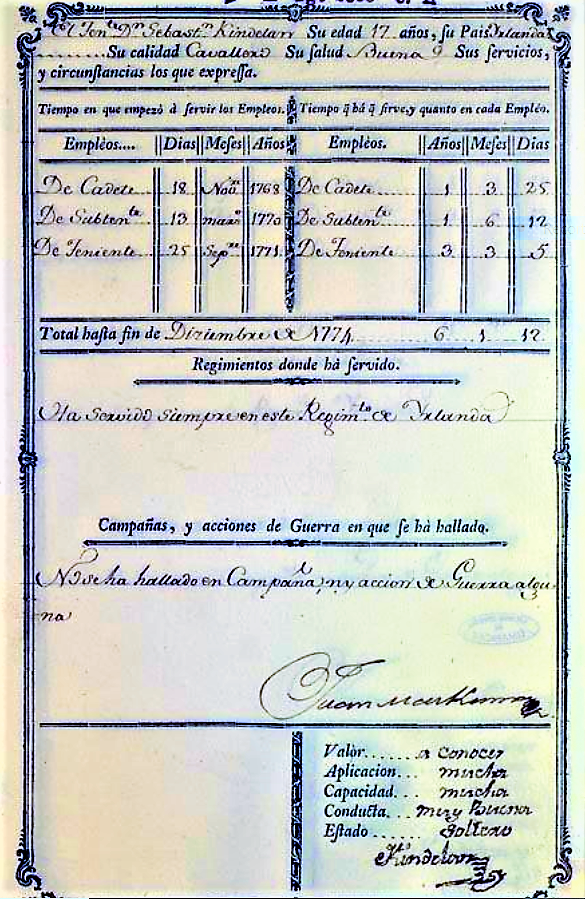 El Ten.te D.n Sebast.n Kindelan Su edad 17 años, su Pais Yrlanda
Su calidad Cavallero Su salud Buena Sus servicios,
y circunstancias los que expressa.
Tiempo en que empezó á servir los Empleos. Tiempo q̄ há q̄ sirve, y quanto en cada Empléo.
Empléos.... Dias Meses Años Empléos. Años Meses Dias
De Cadete 18 Nov.e 1768 De Cadete 1 3 25
De Subten.te 13 marzo 1770 De Subten.te 1 6 12
De Teniente 25 Sep.re 1771 De Teniente 3 3 5
Total hasta fin de Diziembre de 1774 6 1 12
Regimientos donde há servido.
Ha servido siempre en este Regim.to de Yrlanda
Campañas, y acciones de Guerra en que se há hallado.
No se ha hallado en Campaña, ny accion de Guerra algu
na
Juan
Valòr a conocer
Aplicacion... mucha
Capacidad... mucha
Conducta... muy Buena
Estado soltero
Kindelan